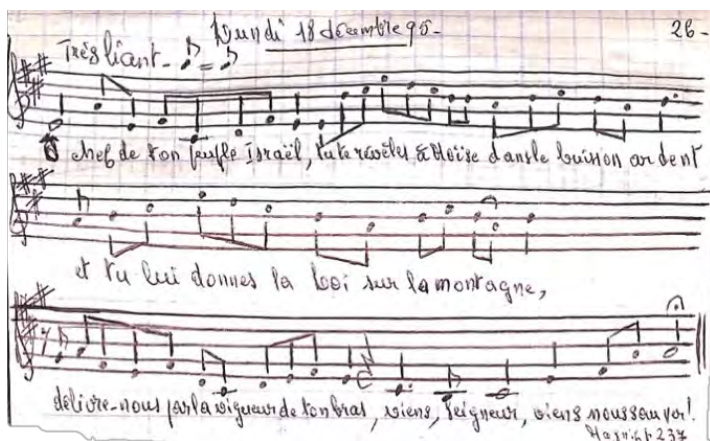 Lundi 18 décembre 95-
26-
Très liant-
Ô chef de ton peuple Israël, tu te révèles à Moïse dans le buisson ardent
et tu lui donnes la Loi sur la montagne,
délivre-nous par la vigueur de ton bras, viens, Seigneur, viens nous sauver!
237